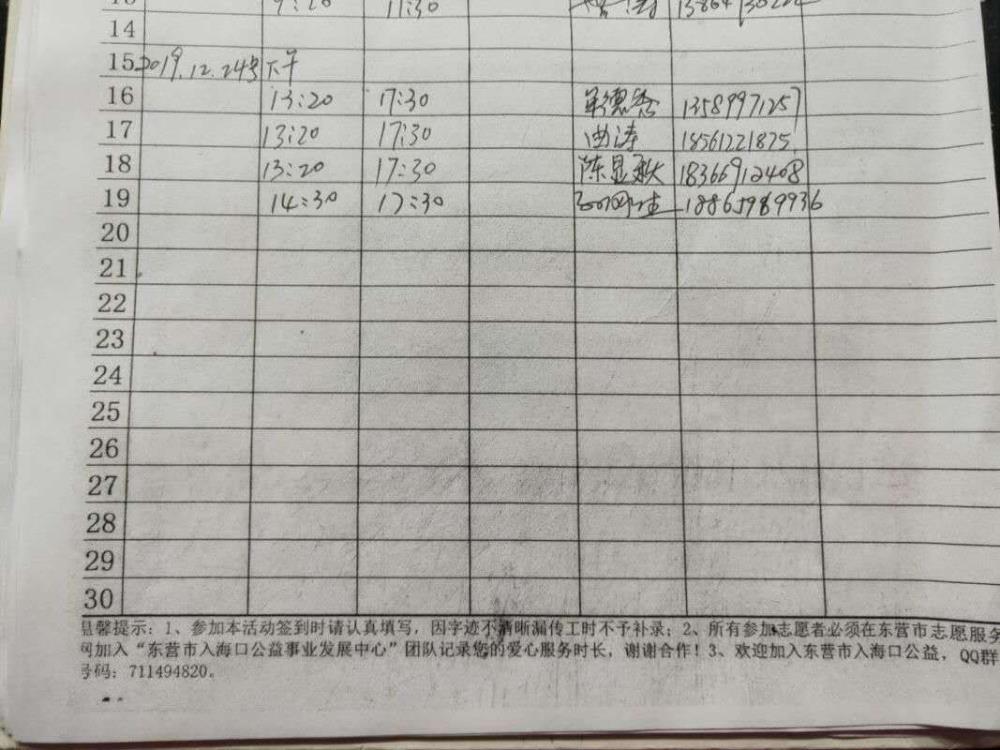 14
15 2019.12.24号 下午
16 13:20 17:30 13589971257
17 13:20 17:30 曲涛 18561221825
18 13:20 17:30 陈显 18366912408
19 14:30 17:30 18865989936
20
21
22
23
24
25
26
27
28
29
30
温馨提示：1、参加本活动签到时请认真填写，因字迹不清晰漏传工时不予补录；2、所有参加志愿者必须在东营市志愿服务
网加入“东营市入海口公益事业发展中心”团队记录您的爱心服务时长，谢谢合作！3、欢迎加入东营市入海口公益，QQ群
号码：711494820。